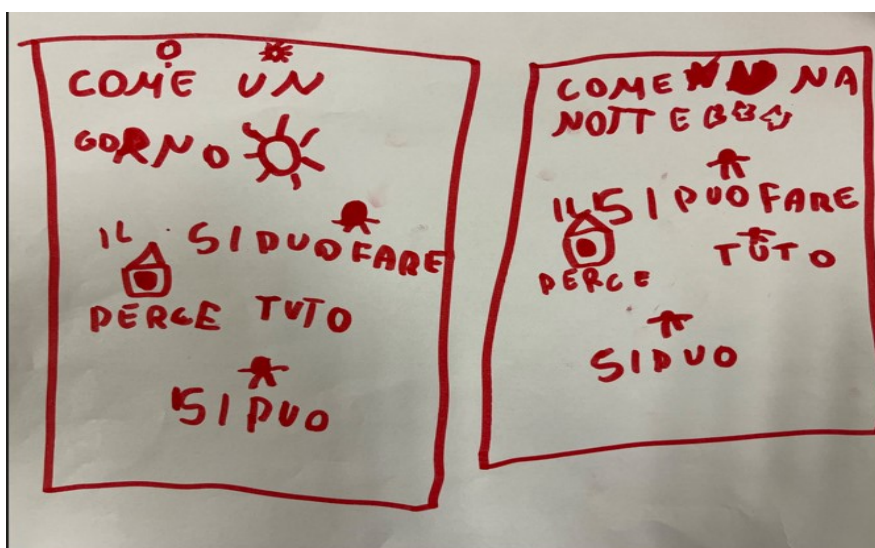 COME UN
GORNO
IL SI PUO FARE
PERCE TUTO
SI PUO
COME NA
NOTTE
IL SI PUO FARE
PERCE TUTO
SI PUO